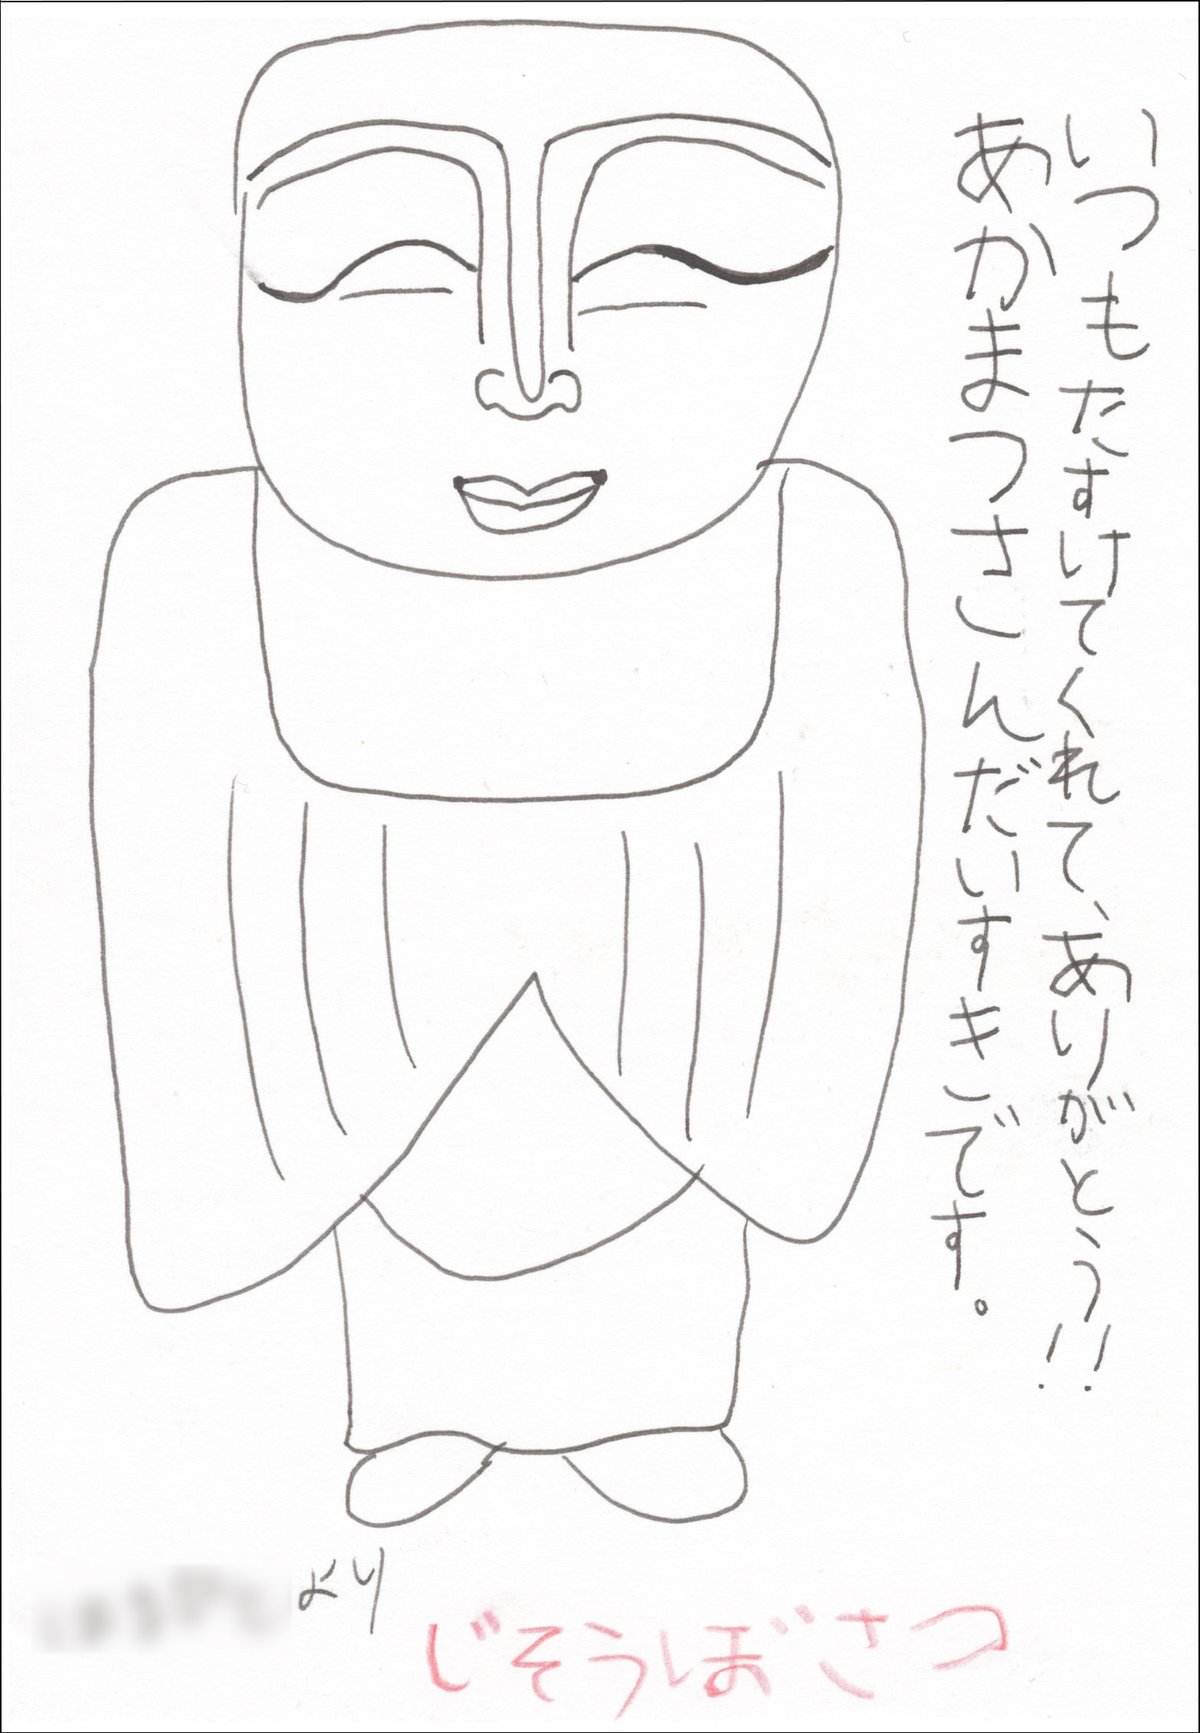 いつもたすけてくれて、ありがとう!!
あかまつさんだいすきです。
より
じそうぼさつ